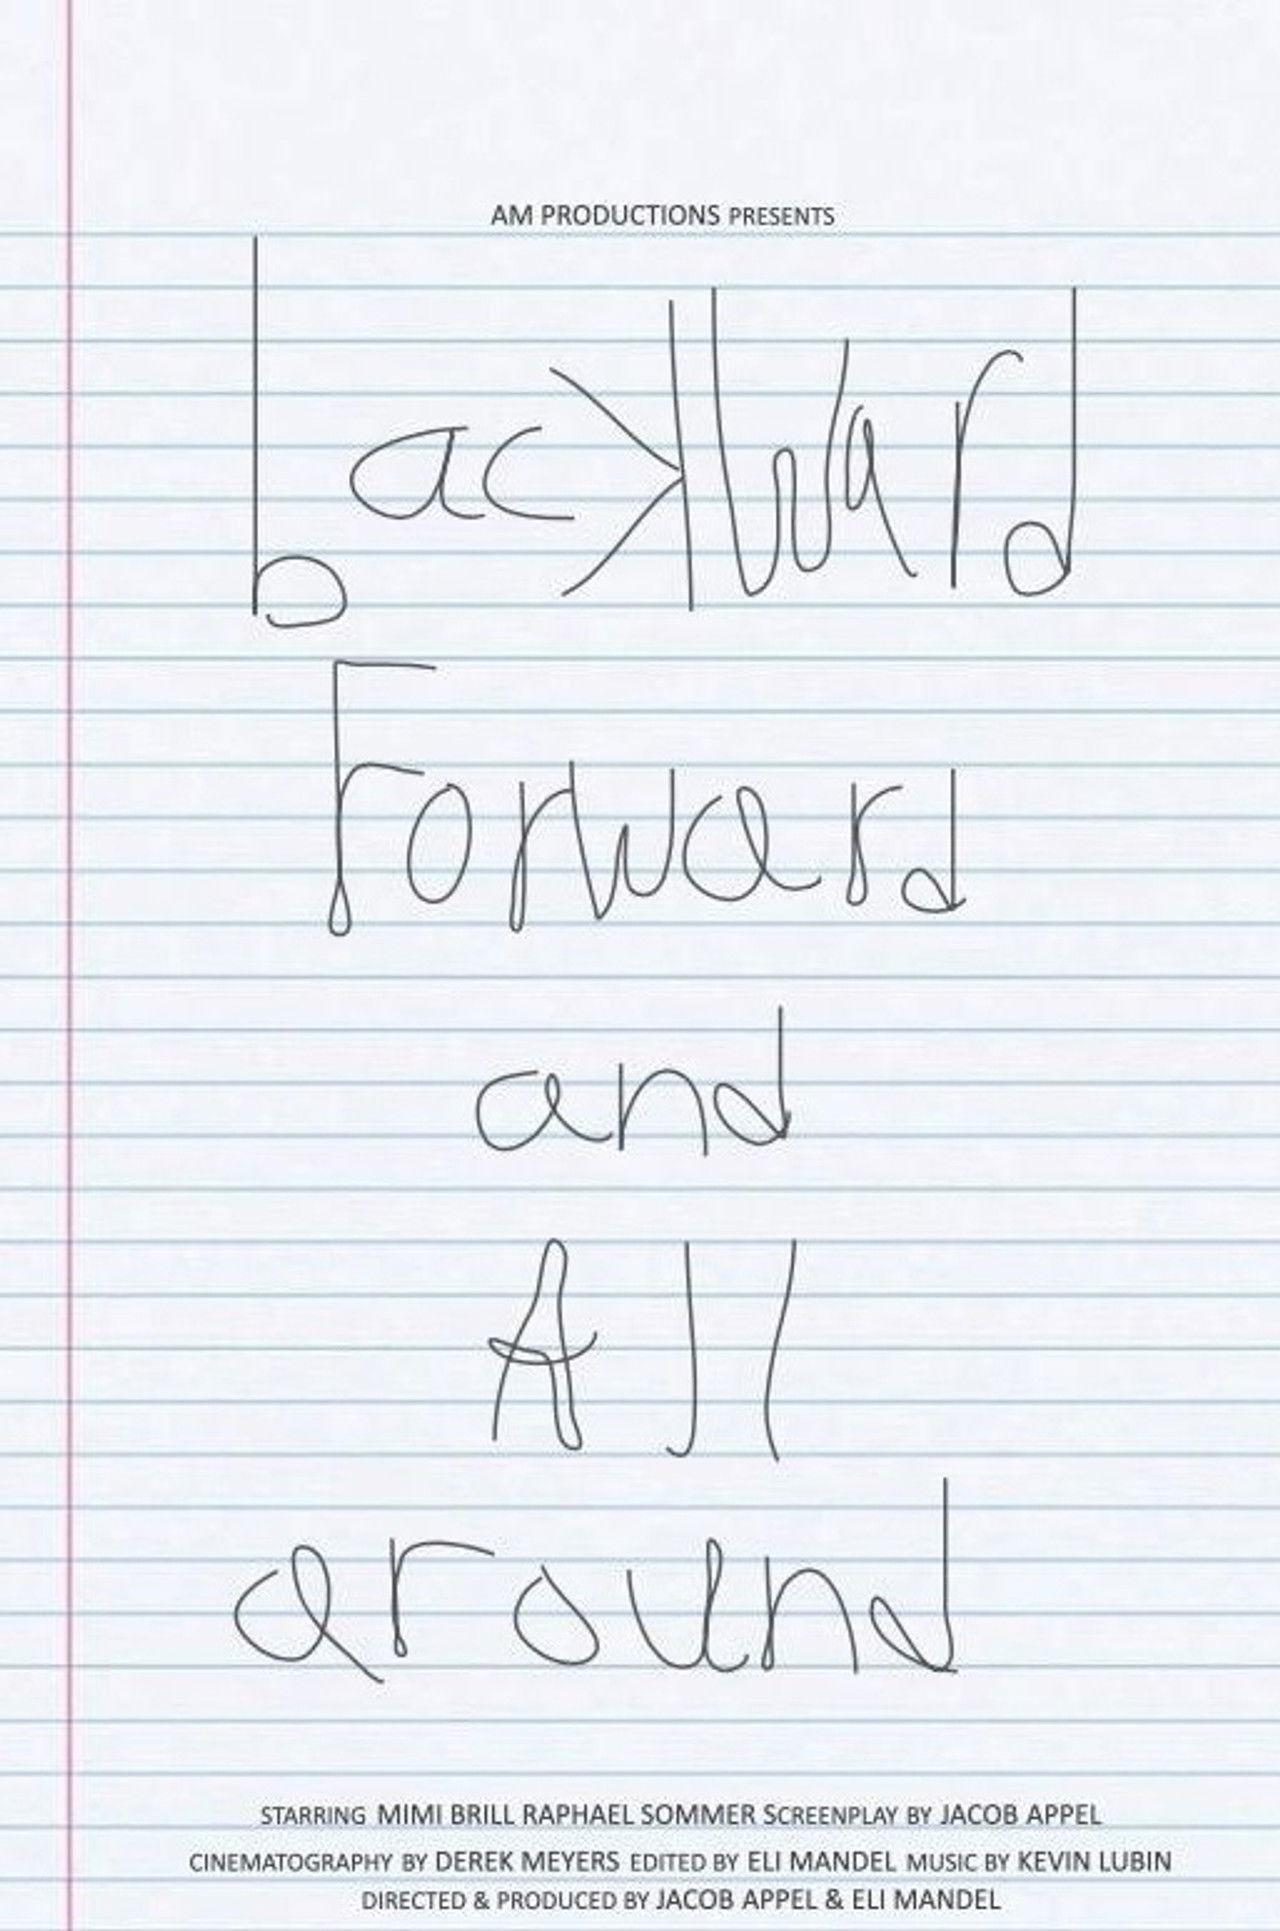 AM PRODUCTIONS PRESENTS
backward
Forward
and
All
around
STARRING MIMI BRILL RAPHAEL SOMMER SCREENPLAY BY JACOB APPEL
CINEMATOGRAPHY BY DEREK MEYERS EDITED BY ELI MANDEL MUSIC BY KEVIN LUBIN
DIRECTED & PRODUCED BY JACOB APPEL & ELI MANDEL